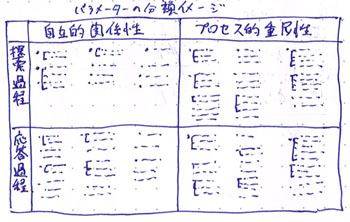 パラメーターの分類イメージ
自立的関係性
プロセス的重層性
探索過程
応答過程